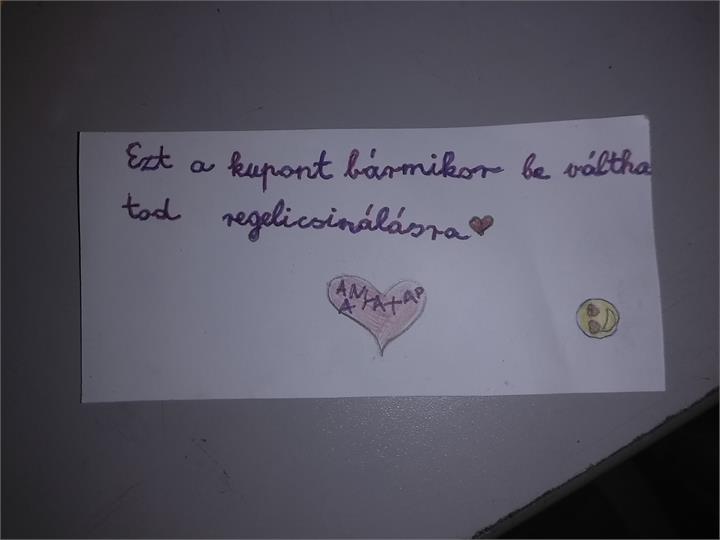 Ezt a kupont bármikor be váltha
tod regelicsinálásra